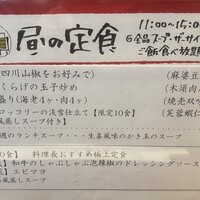 昼の定食
11:00~15:0
全品スープ・ザーサイ
ご飯食べ放題
四川山椒をお好みで)
(麻婆豆
くらげの玉子炒め
(木須肉
盛り(海老4ヶ・肉4ヶ)
(焼売双
ロッコリーの淡雪仕立て【限定10食】
(芙蓉蝦仁
蒸しスープ付き)
週のランチスープ・・・生姜風味のかき玉のスープ
0食】 料理長おすすめ極上定食
和牛のしゃぶしゃぶ泡辣椒のドレッシングソース
エビマヨ
風蒸しスープ